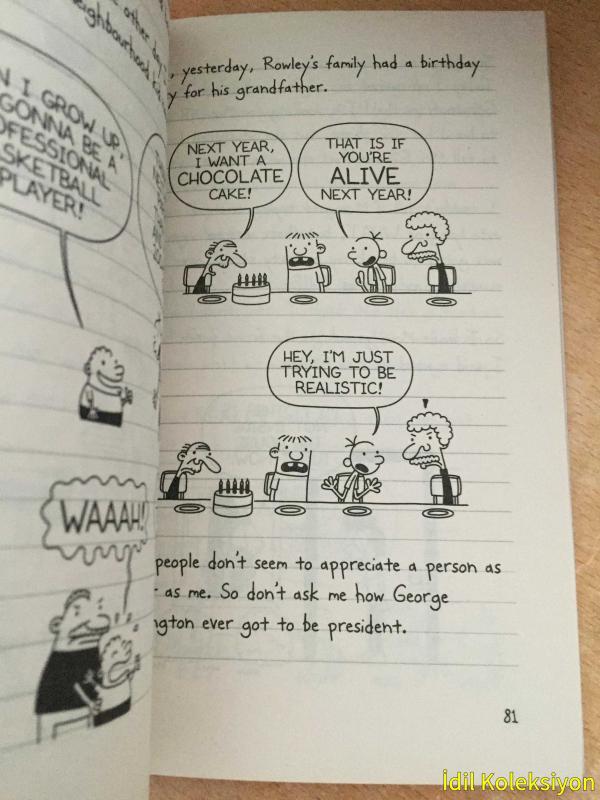 other day
neighbourhood
I GROW UP,
GONNA BE A
BASKETBALL
PLAYER!
WAAAH!
, yesterday, Rowley's family had a birthday
for his grandfather.
NEXT YEAR,
I WANT A
CHOCOLATE
CAKE!
THAT IS IF
YOU'RE
ALIVE
NEXT YEAR!
HEY, I'M JUST
TRYING TO BE
REALISTIC!
people don't seem to appreciate a person as
as me. So don't ask me how George
ngton ever got to be president.
81
İdil Koleksiyon